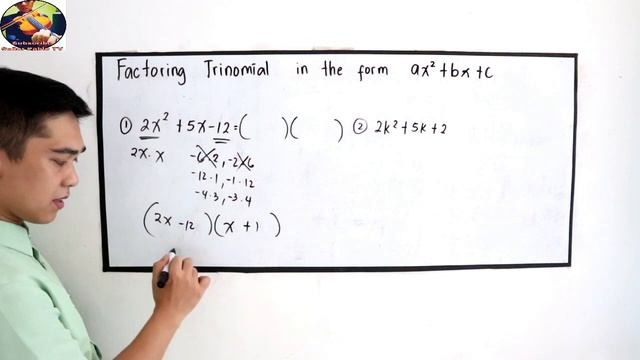 Subscribe
Factoring Trinomial in the form ax² + bx + c
① 2x² + 5x - 12 = (  )(  ) ② 2k² + 5k + 2
2x · x -6 · 2, -2 · 6
-12 · 1, -1 · 12
-4 · 3, -3 · 4
(2x - 12)(x + 1)